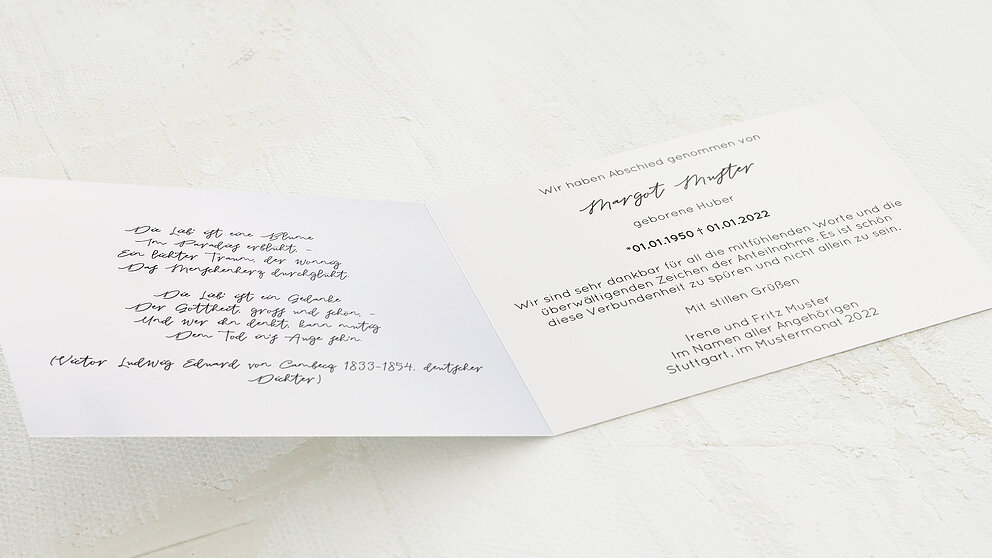 Die Lieb' ist eine Blume
Im Paradies erblüht, -
Ein lichter Traum, der wonnig
Das Menschenherz durchglüht.
Die Lieb' ist ein Gedanke
Der Gottheit, gross und schön, -
Und wer ihn denkt, kann mutig
Dem Tod in's Auge seh'n.
(Victor Ludwig Eduard von Cambecq 1833-1854, deutscher
Dichter)
Wir haben Abschied genommen von
Margot Muster
geborene Huber
*01.01.1950 † 01.01.2022
Wir sind sehr dankbar für all die mitfühlenden Worte und die
überwältigenden Zeichen der Anteilnahme. Es ist schön
diese Verbundenheit zu spüren und nicht allein zu sein.
Mit stillen Grüßen
Irene und Fritz Muster
Im Namen aller Angehörigen
Stuttgart, im Mustermonat 2022